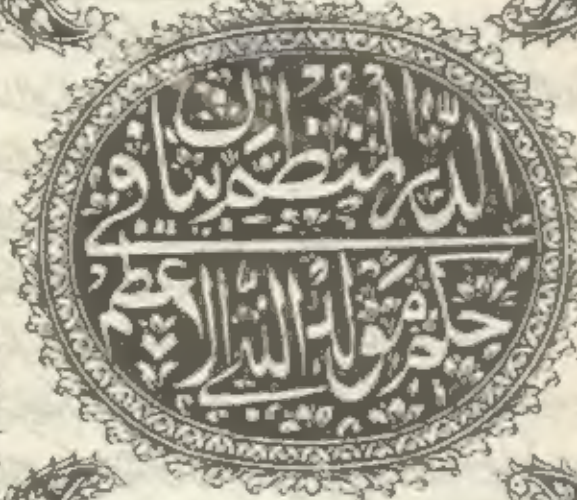 الدُّر المُنظم في بيان
حكم مَولد النبي الاعظم